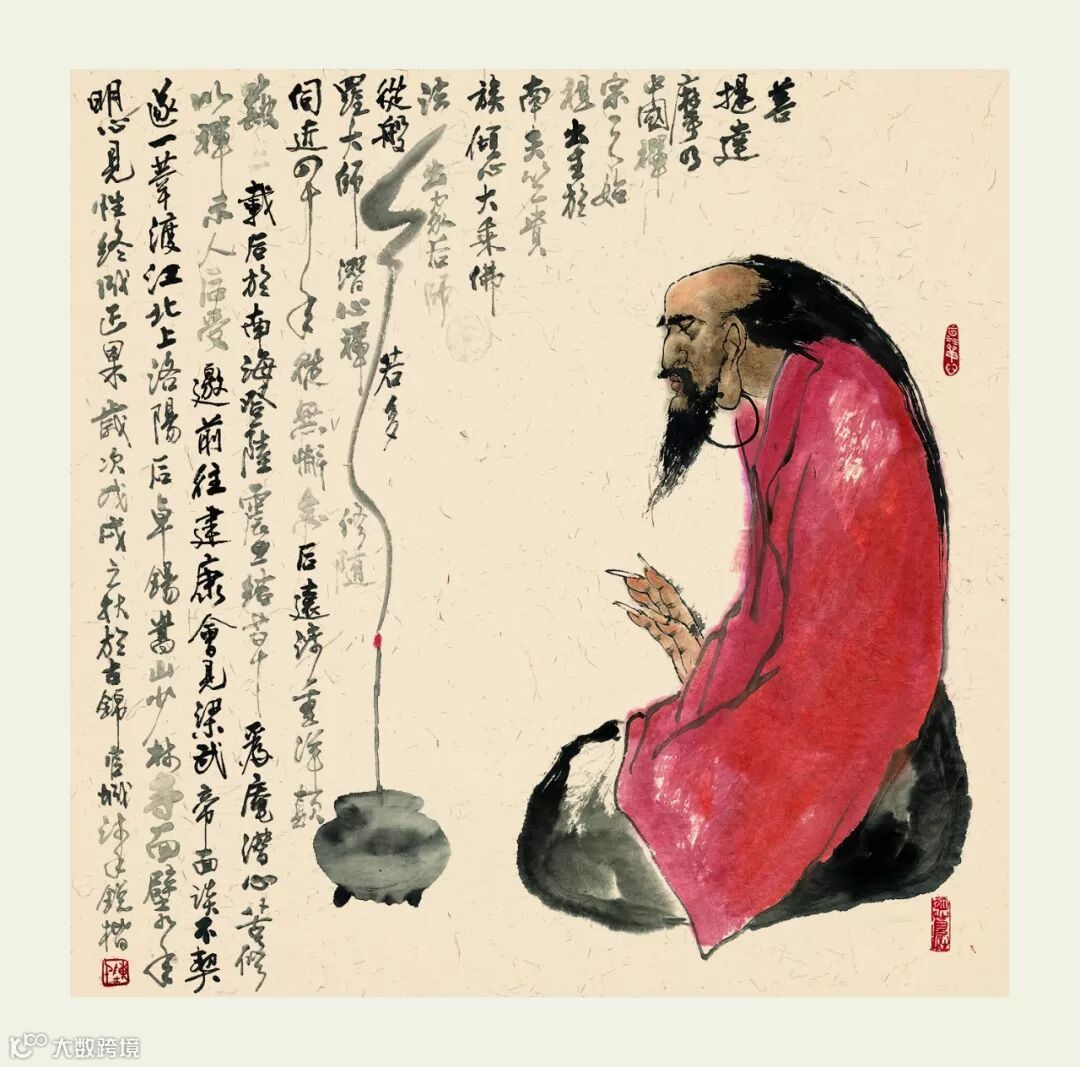 菩
提達
摩乃
中國禪
宗之始
祖出生於
南天竺貴
族傾心大乘佛
法出家后師
從般若多
羅大師潛心禪修随
伺近四十年從無懈怠后遠涉重洋顛
簸三載后於南海登陸震旦結草爲庵潛心苦修
以禪示人后受邀前往建康會見梁武帝面談不契
遂一葦渡江北上洛陽后卓錫嵩山少林寺面壁九年
明心見性終成正果歲次戊戌之秋於古錦官城
陳
大数跨境